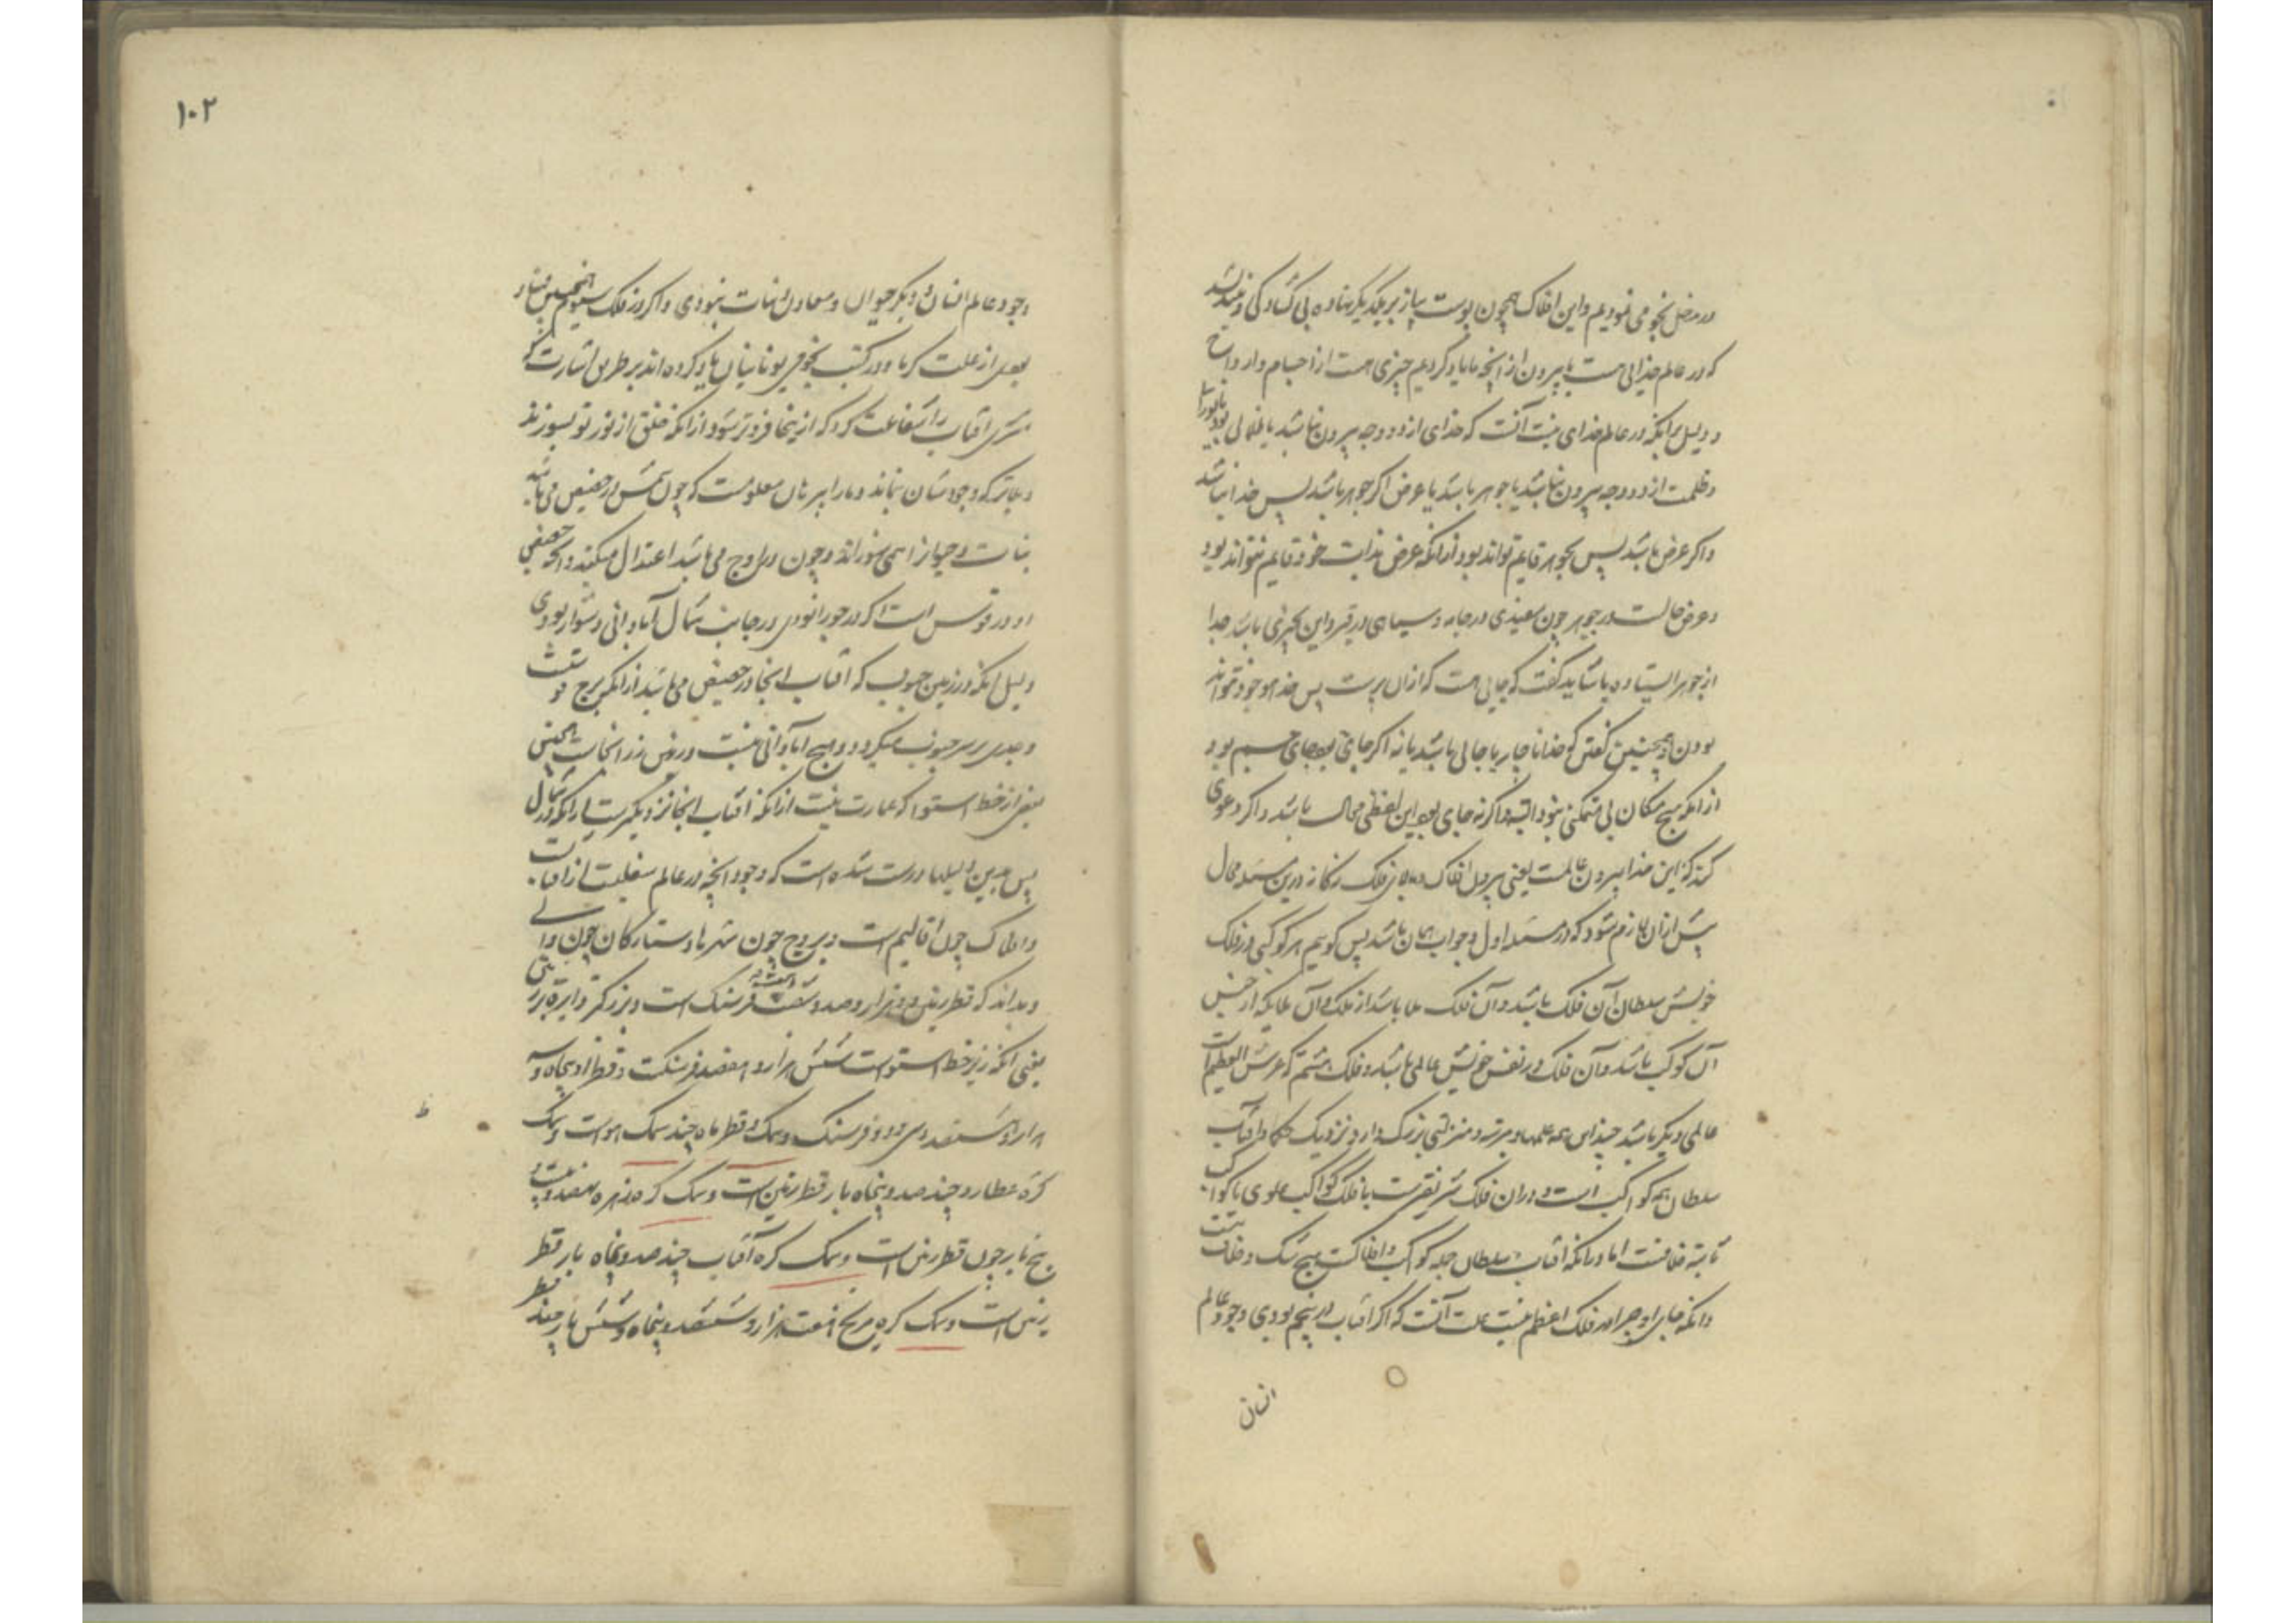 در مدخل نجومی نمودیم و این افلاک همچون پوست پیاز بر یکدیگر نهاده بی گشادگی و
که در عالم خدایی هست یا بیرون از آنچه ما یاد کردیم چیزی هست از اجسام و ارواح
و دلیل برانکه در عالم خدای نیست آنست که خدای از دو وجه بیرون نباشد یا ظلمانی بود یا نورانی
و ظلمت از دو وجه بیرون نباشد یا جوهر باشد یا عرض اگر جوهر باشد پس خدا نباشد
و اگر عرض باشد پس بجوهر قایم تواند بود ازانکه عرض بذات خود قایم نتواند بود
و عرض حالست در جوهر چون سفیدی در جامه و سیاهی در قیر و این چیزی باشد جدا
از جوهر ایستاده باشاید گفت که جایی هست که ازان پرست پس خدا موجود نتواند
بودن و همچنین گفتن که خدا ناچار یا جایی باشد یا نه اگر جای بود بجای جسم بود
ازانکه هیچ مکان بی متمکن نبود البته و اگر نه جای بود این لفظی محال باشد و اگر دعوی
کند که این خدا بیرون عالمست یعنی بیرون افلاک و بالای فلک زنگانه درین مسئله محال
پیش ازان لازم شود که در مسئله اول و جواب همان باشد پس گوییم هر کوکبی در فلک
خویش سلطان آن فلک باشد و آن فلک ملا باشد از ملک و آن ملایکه از جنس
آن کوکب باشد و آن فلک در نفس خویش عالمی باشد و فلک هشتم که عرش العظیم است
عالمی دیگر باشد چند این همه علمها و مرتبه و منزلتی بزرگ دارد و نزدیک حکما آفتاب
سلطان همه کواکب است و دران فلک شریفترست با فلک کواکب علوی با کواکب
ثابته خلافست اما درانکه آفتاب سلطان جمله کواکب و افلاکست هیچ شک و خلاف نیست
و انکه جای او چرا در فلک اعظم نیست علت آنست که اگر آفتاب در پنجم بودی وجود عالم
انسان
۱۰۲
وجود عالم انسان و دیگر حیوان و معادن و نبات نبودی و اگر در فلک سیوم همچنین
بعدی از علت گرما و در کتب نجومی یونانیان یاد کرده اند بر طریق اشارت که
مشتری آفتاب را شفاعت کرد که ازینجا فروتر شود ازانکه خلق از نور تو بسوزند
و بجایی که وجودشان نماند و ما را ببرهان معلومست که چون شمس در حضیض می باشد
نبات و حیوانرا همی سوزاند و چون در اوج می باشد اعتدال میکند و انکه حضیض
او در قوس است اگر در جوزا بودی در جانب شمال آبادانی دشوار بودی
دلیل انکه در زمین جنوب که آفتاب اینجا در حضیض می باشد ازانکه برج قوسست
و جدی بر سر جنوب میگردد و هیچ آبادانی نیست و روش زر آنجاست همچنین
بعضی از خط استوا که عمارت نیست ازانکه آفتاب اینجا نزدیکترست ازانکه در شمال
پس بدین دلیلها درست شده است که وجود آنچه در عالم سفلیست از آفتابست
و افلاک چون اقالیم است و بروج چون شهرها و ستارگان چون والی
و بداند که قطر زمین دو هزار و صد و شصت فرسنگ است و بزرگتر دایره بر
یعنی انکه زیر خط استوا است شش هزار و هفتصد فرسنگست و قطر او پنجاه و سه
هزار و ششصد و سی و دو فرسنگ و سمک و قطر ماه چند سمک هواست و سمک
کره عطارد چند صد و پنجاه بار قطر زمین است و سمک کره زهره نهصد و بیست و
پنج بار چون قطر زمین است و سمک کره آفتاب چند صد و پنجاه بار قطر
زمین است و سمک کره مریخ هفت هزار و ششصد و پنجاه و شش بار چند قطر